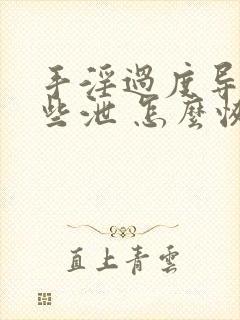 手淫過度导
些泄 怎麼恢
直上青雲